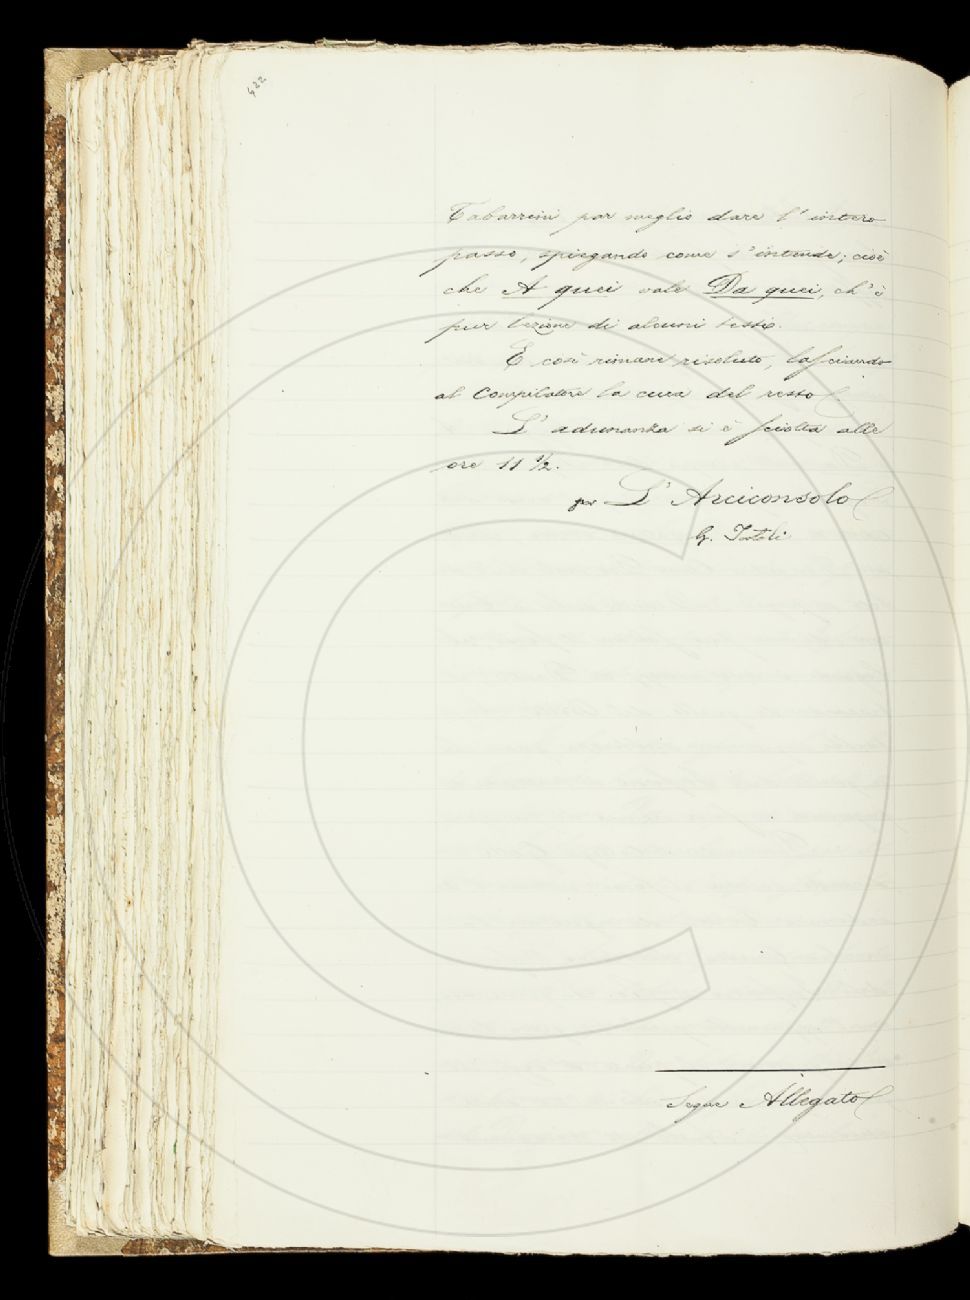 422
Tabarrini par meglio dare l'intero
passo, spiegando come s'intende; cioè
che A quei vale Da quei, ch'è
pur lezione di alcuni testi.
E così rimane risoluto, lasciando
al Compilatore la cura del resto
L'adunanza si è sciolta alle
ore 11 ½.
per L'Arciconsolo
G. Tortoli
Segue Allegato